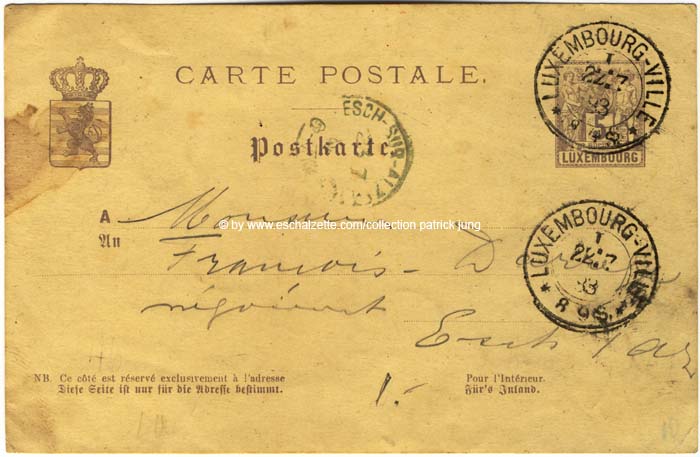 CARTE POSTALE.
Postkarte.
ESCH-SUR-ALZETTE
LUXEMBOURG-VILLE
83
LUXEMBOURG
A Monsieur
An
© by www.eschalzette.com/collection patrick jung
François-
négociant
Esch s/az
LUXEMBOURG-VILLE
83
NB. Ce côté est réservé exclusivement à l'adresse
Diese Seite ist nur für die Adresse bestimmt.
1.-
Pour l'Intérieur.
Für's Inland.